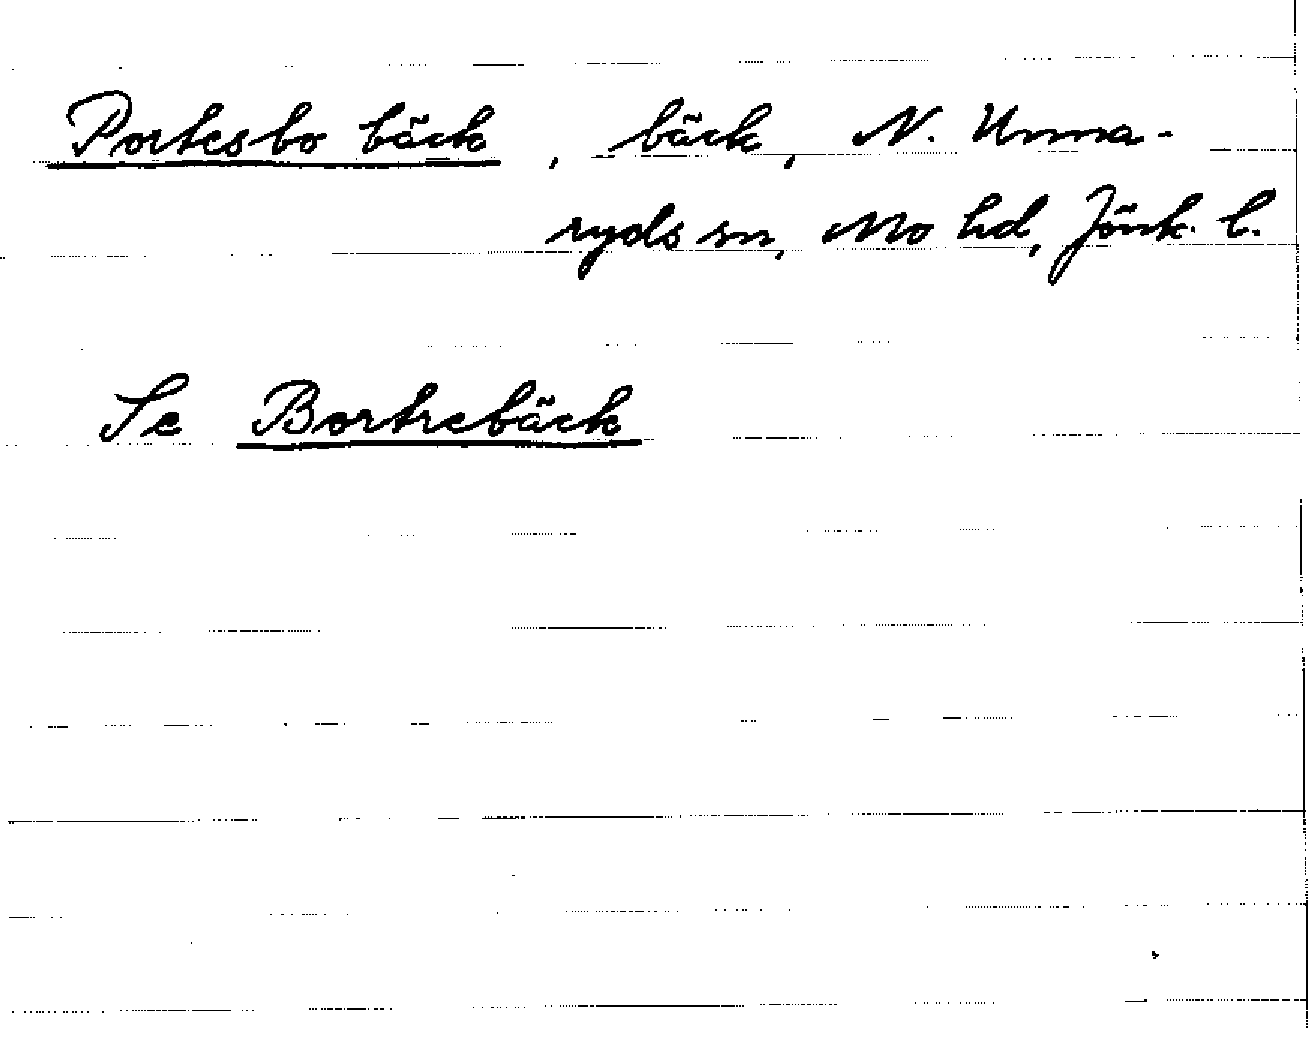 Portesbo bäck, bäck, N. Unna-
ryds sn, Mo hd, Jönk. l.
Se Bortrebäck